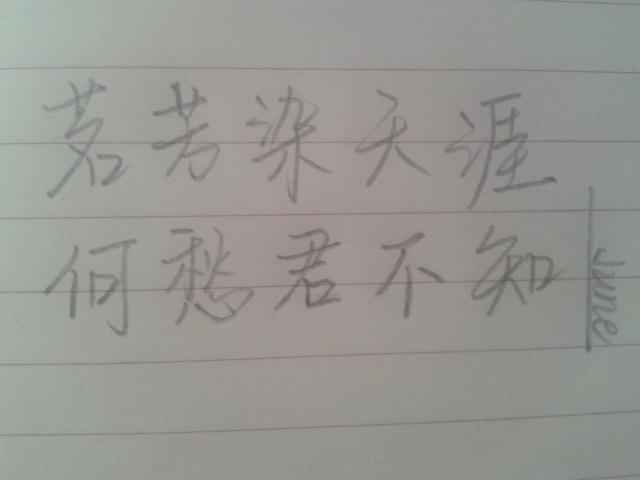 茗芳染天涯
何愁君不知
June